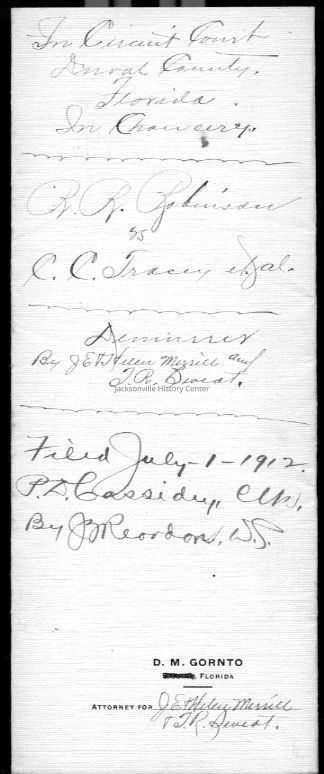 In Circuit Court
Duval County,
Florida.
In Chancery.
R. R. Robinson
vs
C. C. Tracy et al.
Demurrer
By J E & Helen Merrill and
T. R. Sweat.
Jacksonville History Center
Filed July-1-1912.
P. D. Cassidey, Clk.
By J Reordon, D.C.
D. M. GORNTO
FLORIDA
ATTORNEY FOR J E & Helen Merrill
& T. R. Sweat.